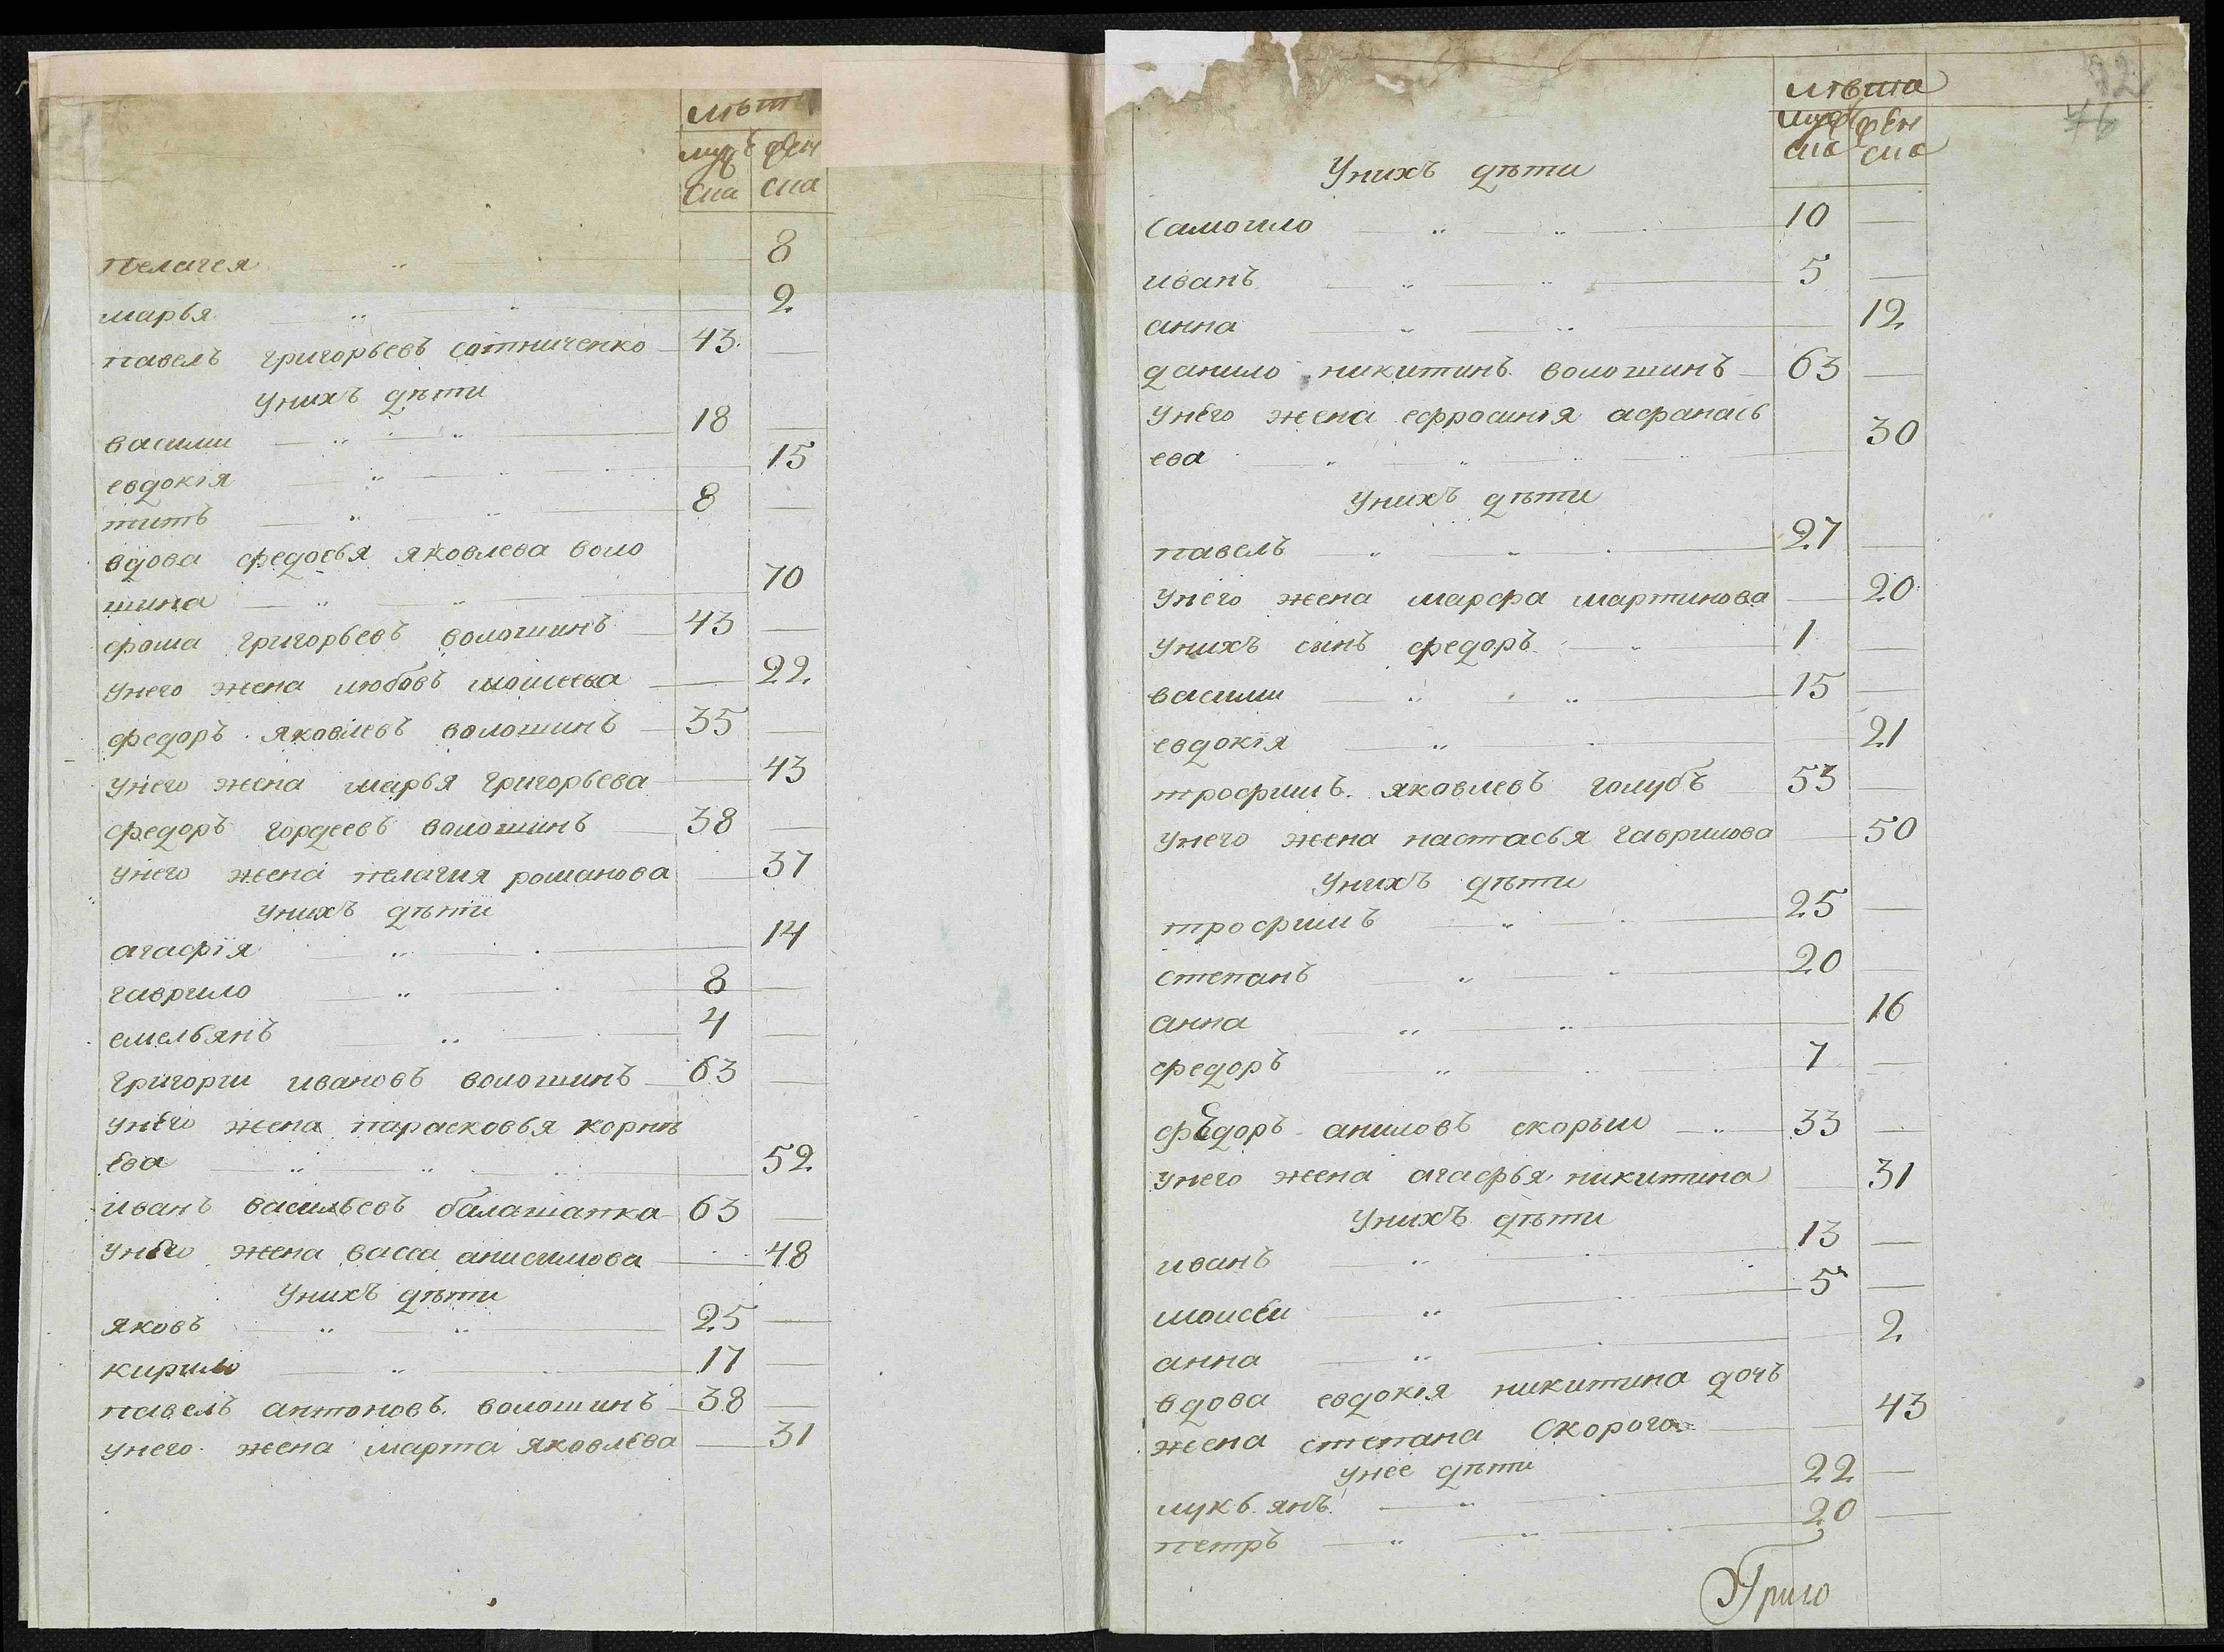 лѣт
муж жен
ска ска
пелагея 8
марья 2
павелъ григорьевъ сотниченко 43
Унихъ дѣти
васили 18
евдокія 15
титъ 8
вдова федосья яковлева воло
шина 70
фома григорьевъ волошинъ 43
Унего жена любовъ моисеева 22
федоръ яковлевъ волошинъ 35
Унего жена марья григорьева 43
федоръ гордеевъ волошинъ 38
Унего жена пелагия романова 37
Унихъ дѣти
агафія 14
гаврило 8
емельянъ 4
григорги ивановъ волошинъ 63
Унего жена парасковья корнѣ
ева 52
иванъ васильевъ балашапка 63
Унего жена васса анисимова 48
Унихъ дѣти
яковъ 25
кирило 17
павелъ антоновъ волошинъ 38
Унего жена марта яковлева 31
72
76
лѣта
муж жен
ска ска
Унихъ дѣти
самоило 10
иванъ 5
анна 12
данило никитинъ волошинъ 63
Унего жена ефросинія афанась
ева 30
Унихъ дѣти
павелъ 27
Унего жена марфа мартинова 20
Унихъ сынъ федоръ 1
васили 15
евдокія 21
трофимъ яковлевъ голубъ 53
Унего жена настасья гаврилова 50
Унихъ дѣти
трофимъ 25
степанъ 20
анна 16
федоръ 7
федоръ аниловъ скорыи 33
Унего жена агафья никитина 31
Унихъ дѣти
иванъ 13
моисеи 5
анна 2
вдова евдокія никитина дочъ
жена степана Скорого 43
Унее дѣти
лукьянъ 22
петръ 20
Григо